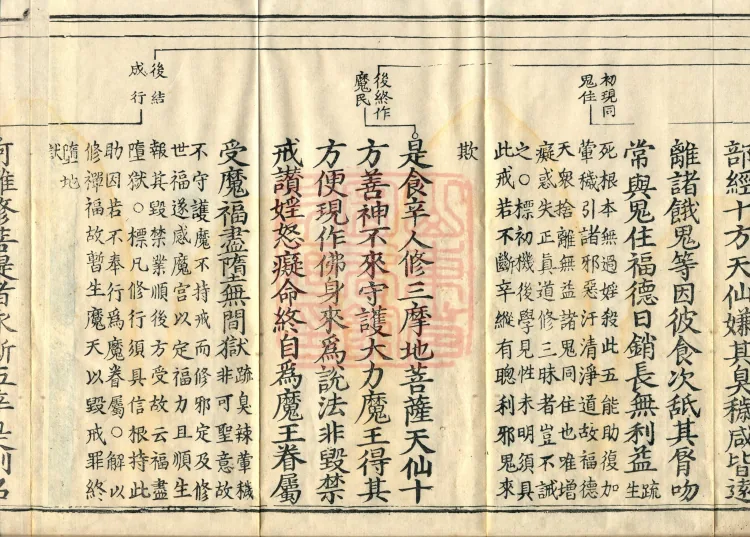 部經十方天仙嫌其臭穢咸皆遠
離諸餓鬼等因彼食次舐其脣吻
常與鬼住福德日銷長無利益疏生
死根本無過婬殺此五能助復加
葷穢引諸邪惡汙清淨道故福德
天衆捨離無益諸鬼同住也唯增
癡惑失正真道修三昧者豈不誡
之〇標初機後學見性未明須具
此戒若不斷辛縱有聰利邪鬼來
欺
初現同
鬼住
是食辛人修三摩地菩薩天仙十
方善神不來守護大力魔王得其
方便現作佛身來為說法非毀禁
戒讚婬怒癡命終自為魔王眷屬
後終作
魔民
受魔福盡墮無間獄疏臭辣葷穢
非可聖意故
不守護魔不持戒而修邪定及修
世福遂感魔宮以定福力且順生
報其毀禁業順後方受故云福盡
墮獄〇標凡修行須具信根持此
助因若不奉行為魔眷屬〇解以
修禪福故暫生魔天以毀戒罪終
墮地
獄
後結
成行
阿難修菩提者永斷五辛是則名